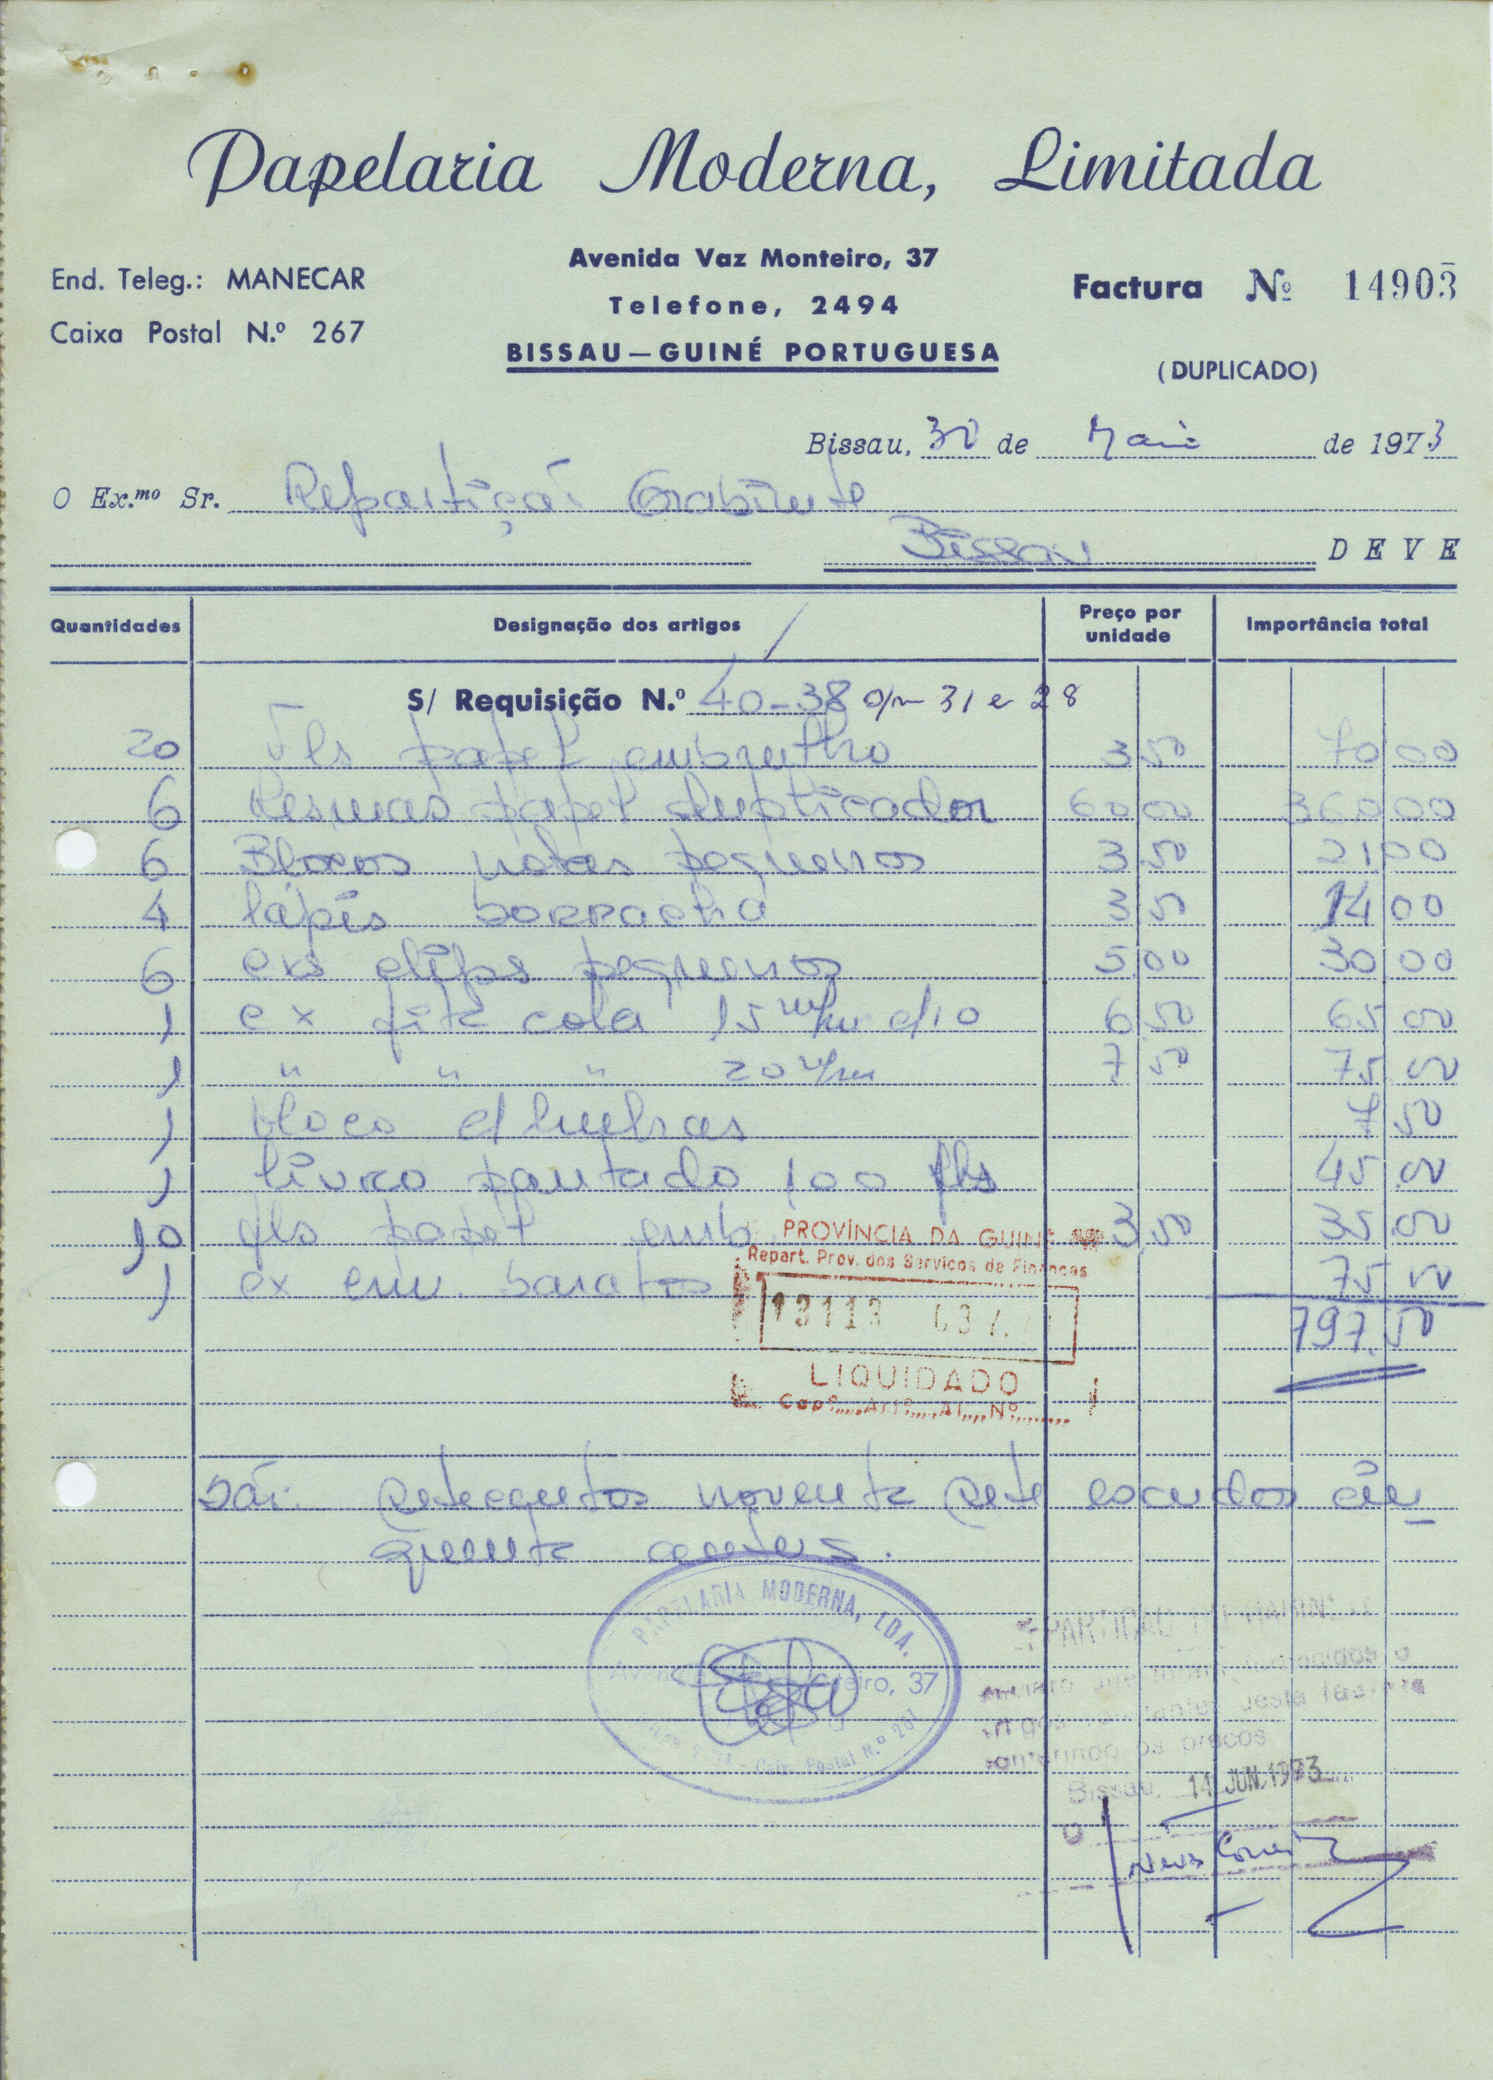 Papelaria Moderna, Limitada
End. Teleg.: MANECAR
Caixa Postal N.º 267
Avenida Vaz Monteiro, 37
Telefone, 2494
BISSAU — GUINÉ PORTUGUESA
Factura Nº 14903
(DUPLICADO)
Bissau, 30 de Maio de 1973
O Ex.mo Sr. Repartição Gabinete
Bissau DEVE
Quantidades Designação dos artigos Preço por unidade Importância total
S/ Requisição N.º 40-38 31 e 28
20 Fls papel embrulho 3 50 70 00
6 Resmas papel duplicador 60 00 360 00
6 Blocos notas pequenos 3 50 21 00
4 lápis borracha 3 50 14 00
6 cxs clips pequenos 5 00 30 00
1 cx fita cola 15 m/m c/10 6 50 65 00
1 " " " 20 m/m 7 50 75 00
1 bloco c/ linhas 7 50
1 livro pautado 100 fls 45 00
10 fls papel emb. 3 50 35 00
1 cx env. baratos 75 00
797.50
PROVÍNCIA DA GUINÉ
Repart. Prov. dos Serviços de Finanças
13113
LIQUIDADO
Cap.º Art.º Al. Nº
São: setecentos novente sete escudos cin
quenta centvs.
PAPELARIA MODERNA, LDA.
Avenida Vaz Monteiro, 37
Caix. Postal N.º 267
desta factura
os preços
Bissau, 14 JUN. 1973
O